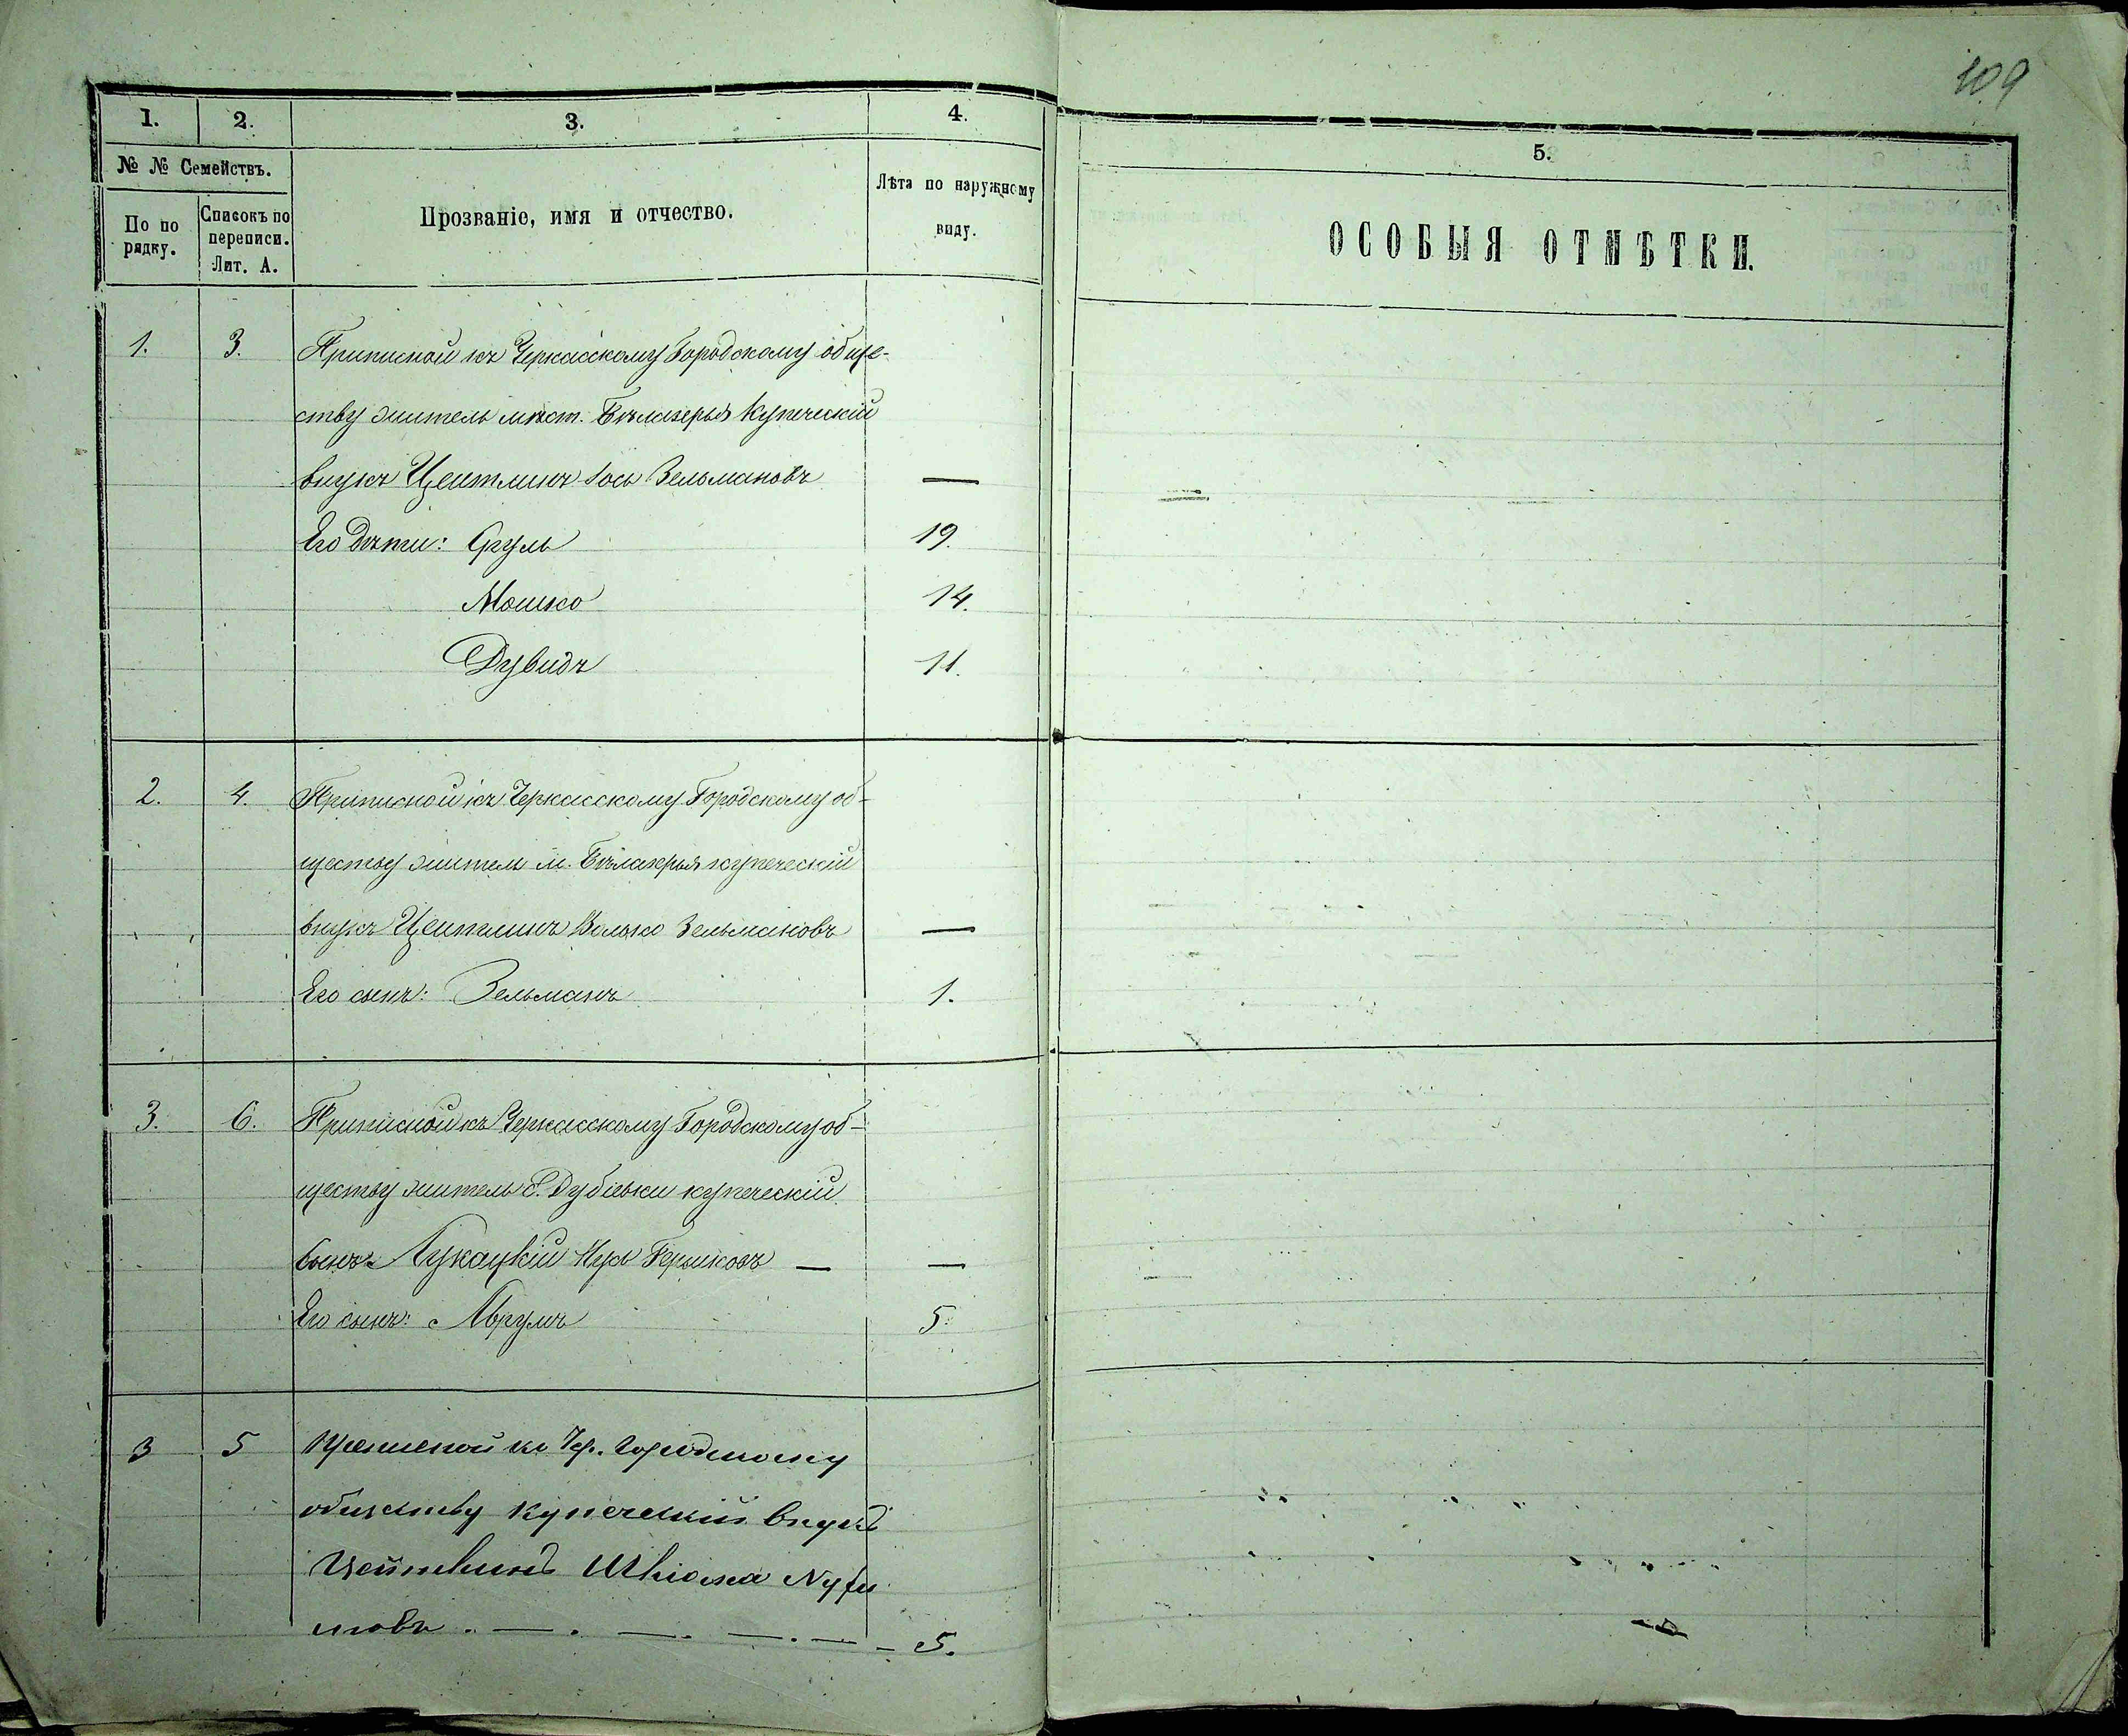 109
1. 2. 3. 4. 5.
№ № Семействъ.
По по рядку.
Списокъ по переписи. Лит. А.
Прозваніе, имя и отчество.
Лѣта по наружному виду.
ОСОБЫЯ ОТМѢТКИ.
1. 3. Приписной къ Черкасскому Городскому обще-
ству житель мѣст. Бѣлазерья Купеческій
внукъ Цейтлинъ Іось Зельмановъ —
Его дѣти: Сруль 19.
Мошко 14.
Дувидъ 11.
2. 4. Приписной къ Черкасскому Городскому об-
ществу житель м. Бѣлазерья купеческій
внукъ Цейтлинъ Волько Зельмановъ —
Его сынъ: Зельманъ 1.
3. 6. Приписной къ Черкасскому Городскому об-
ществу житель С. Дубіевки купеческій
сынъ Лукацкій Нусь Гершковъ — —
Его сынъ: Аврумъ 5.
3 5 Приписной къ Чер. Городскому
обществу купеческій внукъ
Цейтлинъ Шліома
мовъ . — . — . — . — - 5.